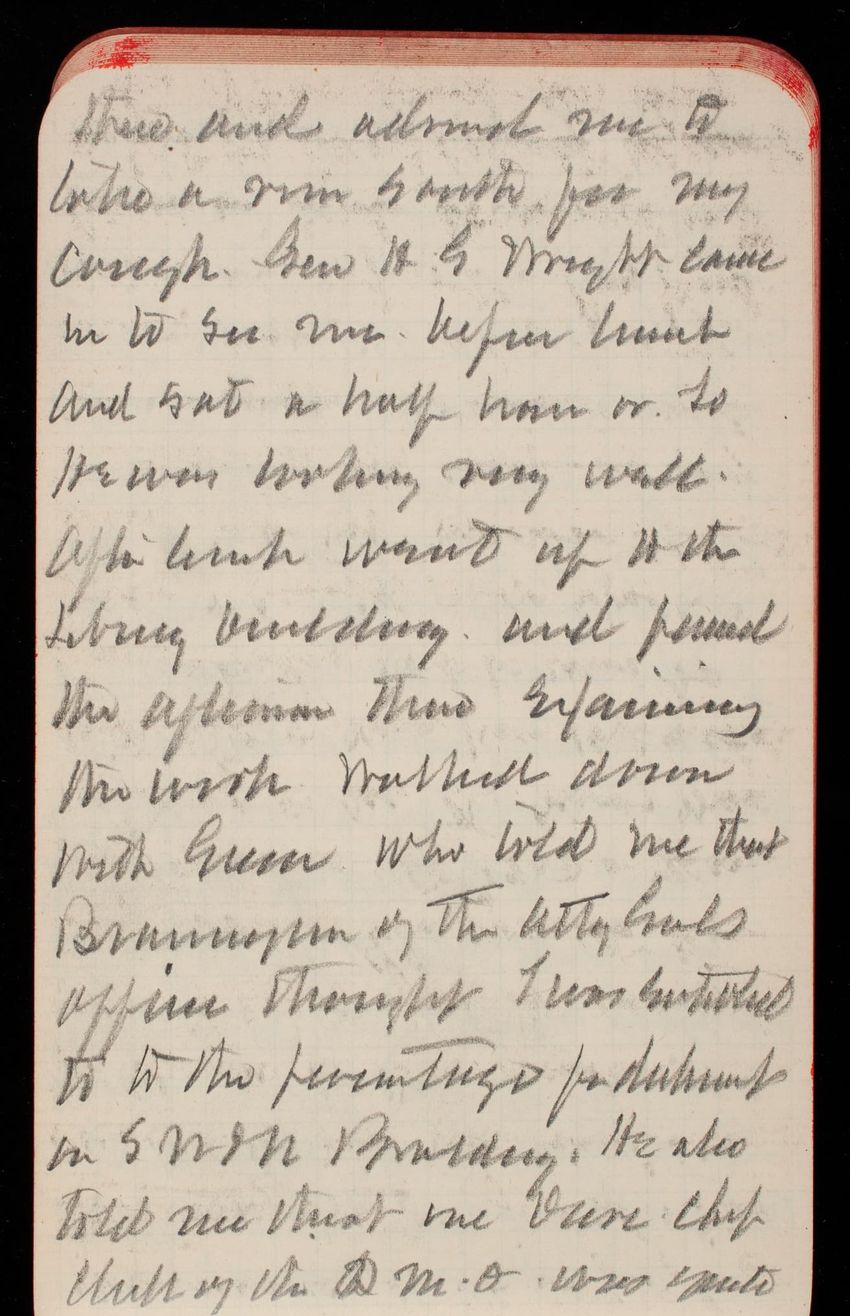 there and advised me to
take a run south for my
cough. Gen H G Wright came
in to see me. before lunch
and sat a half hour or. so
He was looking very well.
After lunch went up to the
Library building. and passed
the afternoon there explaining
the work Walked down
with Green who told me that
of the Atty Genls
office thought I was entitled
to to the percentage for
on S W & N Building. He also
told me that me chief
Clerk of the Q M. O was quite